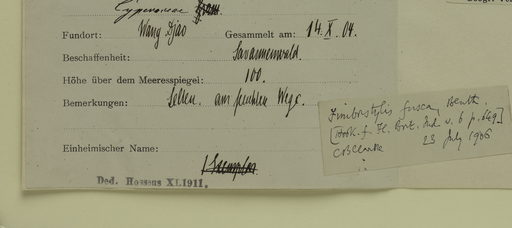 Cyperaceae
Fundort: Wang Djao Gesammelt am: 14. X. 04.
Beschaffenheit: Savannenwald.
Höhe über dem Meeresspiegel: 100.
Bemerkungen: Selten. am feuchten Wege.
Einheimischer Name:
1 Exemplar
Ded. Hosseus XI.1911.
Fimbristylis fusca, Benth.
[Hook. f. Fl. Brit. Ind. v. 6 p. 649]
CBClarke 23 July 1906